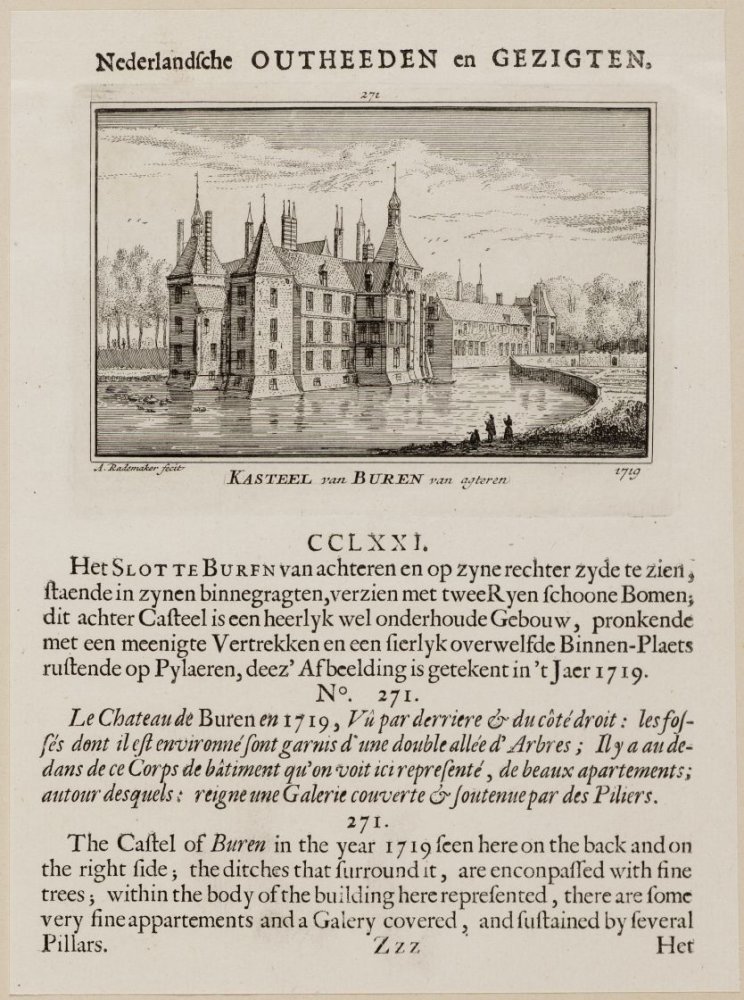 Nederlandſche OUTHEEDEN en GEZIGTEN,
271
A. Rademaker fecit
KASTEEL van BUREN van agteren
1719
CCLXXI.
Het SLOT TE BUREN van achteren en op zyne rechter zyde te zien,
ſtaende in zynen binnegragten, verzien met twee Ryen ſchoone Bomen;
dit achter Caſteel is een heerlyk wel onderhoude Gebouw, pronkende
met een meenigte Vertrekken en een ſierlyk overwelfde Binnen-Plaets
ruſtende op Pylaeren, deez' Afbeelding is getekent in 't Jaer 1719.
Nº. 271.
Le Chateau de Buren en 1719, Vû par derriere & du côté droit : les foſ-
ſés dont il eſt environné ſont garnis d'une double allée d'Arbres ; Il y a au de-
dans de ce Corps de bâtiment qu'on voit ici repreſenté, de beaux apartements;
autour desquels : reigne une Galerie couverte & ſoutenue par des Piliers.
271.
The Caſtel of Buren in the year 1719 ſeen here on the back and on
the right ſide ; the ditches that ſurround it, are enconpaſſed with fine
trees ; within the body of the building here repreſented, there are ſome
very fine appartements and a Galery covered, and ſuſtained by ſeveral
Pillars.
Zzz
Het